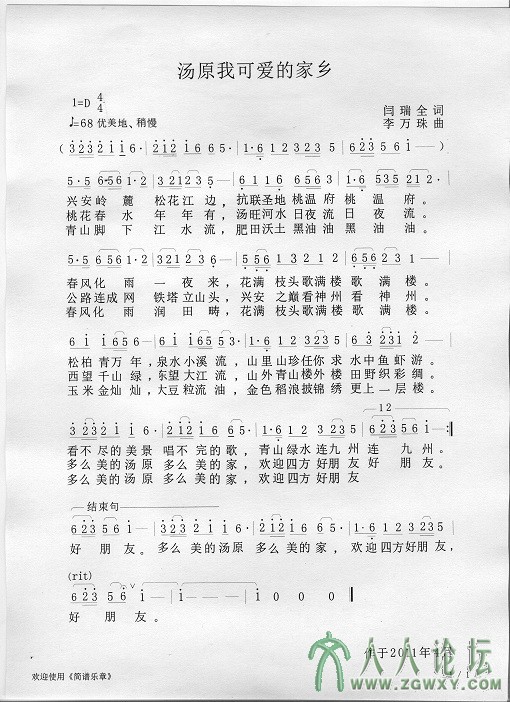 汤原我可爱的家乡
1=D 4/4
♩=68 优美地、稍慢
闫瑞全 词
李万珠 曲
( 3 2 3 2 1 1 6 · 2 1 2 1 6 5 · 1 · 6 1 2 3 2 3 5 6 2 3 5 1 - )
5 · 5 6 5 6 1 · 2 · 3 2 1 2 3 5 - 4 · 1 1 6 1 6 5 · 2 · 5 3 5 2 1 2 ·
兴安岭 麓 松花江 边,抗联圣地 桃温府 桃 温 府。
桃花春 水 年年 有,汤旺河水 日夜流 日 夜 流。
青山脚 下 江 水流,肥田沃土 黑油油 黑 油 油。
5 · 5 6 5 6 1 · 2 · 3 2 3 1 2 6 - 1 · 2 1 2 6 5 6 3 · 2 · 6 5 6 1 -
春风化 雨 一 夜 来,花满 枝头歌满楼 歌 满 楼。
公路连成 网 铁塔 立山头,兴安 之巅看神州 看 神 州。
春风化 雨 润 田 畴,花满 枝头歌满楼 歌 满 楼。
6 1 1 6 5 - 6 1 6 5 3 - 2 · 3 2 1 6 5 6 1 · 6 · 3 2 3 1 2 -
松柏 青万 年,泉水小溪 流,山里山珍任你 求 水中 鱼虾 游。
西望 千山 绿,东望大江 流,山外青山楼外 楼 田野 织彩 绸。
玉米 金灿 灿,大豆粒流 油,金色 稻浪披锦 绣 更上 一层 楼。
12
3 2 3 2 1 1 6 · 2 1 2 1 6 5 · 1 · 6 1 2 3 2 3 5 6 2 3 5 6 1 - :‖
看不 尽的美景 唱不 完的歌,青山绿水 连九州 连 九 州。
多么 美的汤原 多么 美的 家,欢迎四方 好朋友 好 朋 友。
多么 美的汤原 多么 美的 家,欢迎四方 好朋友
结束句
6 2 3 5 6 1 - 3 2 3 2 1 1 6 · 2 1 2 1 6 5 · 1 · 6 1 2 3 2 3 5
好 朋 友。多么 美的汤原 多么 美的 家,欢迎 四方好朋友,
(rit)
6 2 3 5 6 · ∨ 1 - - - 1 0 0 0 ‖
好 朋 友。
作于2011年
欢迎使用《简谱乐章》
人人论坛
www.zgwxy.com